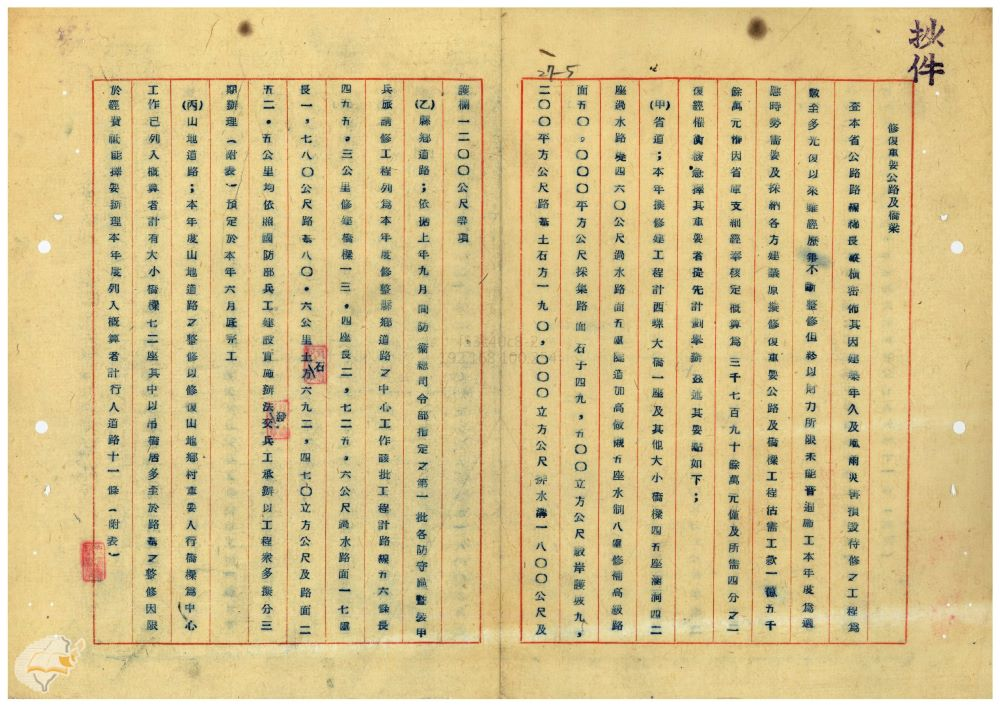 抄件
27-5
修復重要公路及橋梁
查本省公路路線綿長縱橫密佈其因建築年久及風雨災害損毀待修之工程為
數至多光復以來雖經歷年不斷整修但終以財力所限未能普遍施工本年度為適
應時勢需要及採納各方建議原擬修復重要公路及橋樑工程估需工款一億五千
餘萬元惟因省庫支絀經奉核定概算為三千七百九十餘萬元僅及所需四分之二
復經權衡緩急擇其重要者提先計劃舉辦茲述其要點如下；
(甲)省道；本年擬修建工程計西螺大橋一座及其他大小橋樑四五座涵洞四二
座過水路堤四六〇公尺過水路面五處隧道加高做襯五座水制八處修補高級路
面五〇，〇〇〇平方公尺採集路面石子四九，五〇〇立方公尺駁岸護坡九，
二〇〇平方公尺路基土石方一九〇，〇〇〇立方公尺排水溝一八〇〇公尺及
護欄一二〇〇公尺等項
(乙)縣鄉道路；依據上年九月間防衛總司令部指定之第一批各防守區暨裝甲
兵旅請修工程列為本年度修整縣鄉道路之中心工作該批工程計路線五六條長
四五五。三公里修建橋樑一三。四座長二，七二五。六公尺過水路面一七處
長一，七八〇公尺路基八〇。六公里土石方六九二，四七〇立方公尺及路面二
五二。五公里均依照國防部兵工建設實施辦法交兵工承辦以工程眾多擬分三
期辦理(附表)預定於本年六月底完工
(丙)山地道路；本年度山地道路之整修以修復山地鄉村重要人行橋樑為中心
工作已列入概算者計有大小橋樑七二座其中以吊橋居多至於路基之整修因限
於經費祇能擇要辦理本年度列入概算者計行人道路十一條(附表)